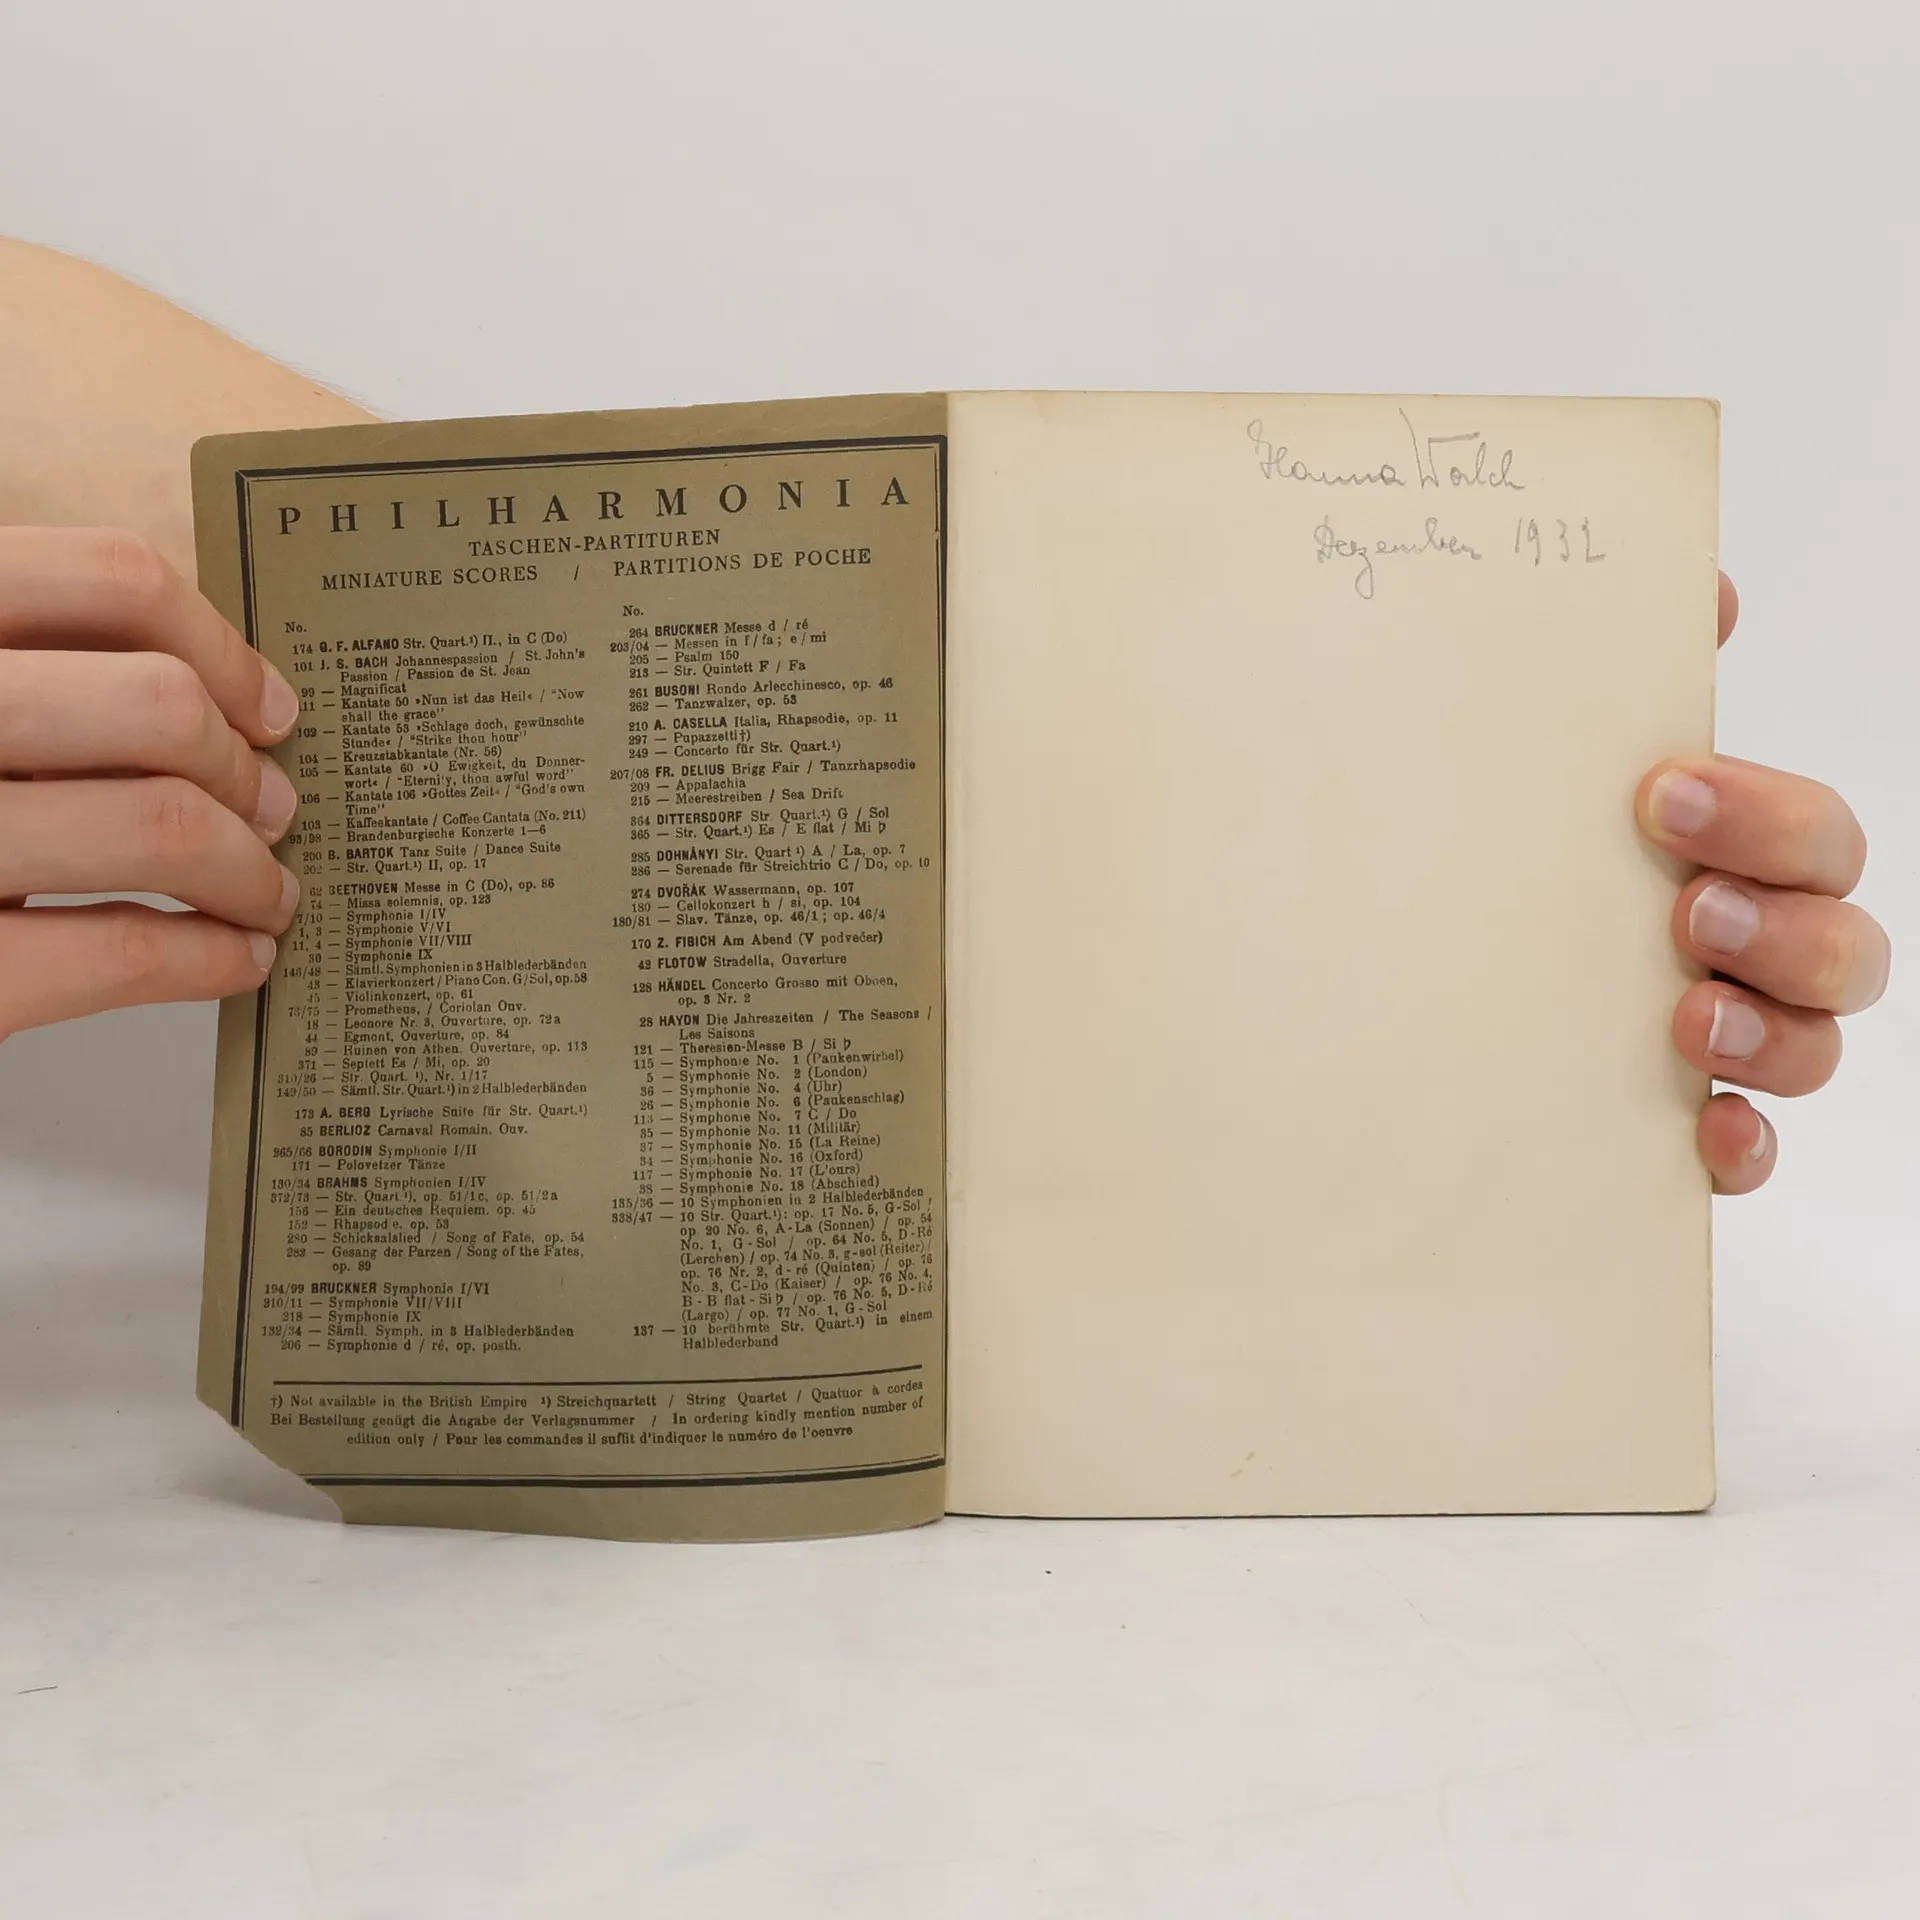 PHILHARMONIA
TASCHEN-PARTITUREN
MINIATURE SCORES / PARTITIONS DE POCHE
No.
174 G. F. ALFANO Str. Quart.¹) II., in C (Do)
101 J. S. BACH Johannespassion / St. John's
Passion / Passion de St. Jean
99 — Magnificat
11 — Kantate 50 »Nun ist das Heil« / "Now
shall the grace"
102 — Kantate 53 »Schlage doch, gewünschte
Stunde« / "Strike thou hour"
104 — Kreuzstabkantate (Nr. 56)
105 — Kantate 60 »O Ewigkeit, du Donner-
wort« / "Eternity, thou awful word"
106 — Kantate 106 »Gottes Zeit« / "God's own
Time"
103 — Kaffeekantate / Coffee Cantata (No. 211)
93/98 — Brandenburgische Konzerte 1—6
200 B. BARTOK Tanz Suite / Dance Suite
202 — Str. Quart.¹) II, op. 17
62 BEETHOVEN Messe in C (Do), op. 86
74 — Missa solemnis, op. 123
7/10 — Symphonie I/IV
1, 3 — Symphonie V/VI
11, 4 — Symphonie VII/VIII
30 — Symphonie IX
146/48 — Sämtl. Symphonien in 3 Halblederbänden
43 — Klavierkonzert / Piano Con. G/Sol, op. 58
45 — Violinkonzert, op. 61
73/75 — Prometheus, / Coriolan Ouv.
18 — Leonore Nr. 3, Ouverture, op. 72a
44 — Egmont, Ouverture, op. 84
89 — Ruinen von Athen. Ouverture, op. 113
371 — Septett Es / Mi, op. 20
310/26 — Str. Quart. ¹), Nr. 1/17
149/50 — Sämtl. Str. Quart.¹) in 2 Halblederbänden
173 A. BERG Lyrische Suite für Str. Quart.¹)
85 BERLIOZ Carnaval Romain, Ouv.
265/66 BORODIN Symphonie I/II
171 — Polovetzer Tänze
130/34 BRAHMS Symphonien I/IV
372/73 — Str. Quart.¹), op. 51/1c, op. 51/2a
156 — Ein deutsches Requiem, op. 45
152 — Rhapsodie, op. 53
280 — Schicksalslied / Song of Fate, op. 54
283 — Gesang der Parzen / Song of the Fates,
op. 89
194/99 BRUCKNER Symphonie I/VI
210/11 — Symphonie VII/VIII
218 — Symphonie IX
132/34 — Sämtl. Symph. in 3 Halblederbänden
206 — Symphonie d / ré, op. posth.
No.
264 BRUCKNER Messe d / ré
203/04 — Messen in f / fa ; e / mi
205 — Psalm 150
213 — Str. Quintett F / Fa
261 BUSONI Rondo Arlecchinesco, op. 46
262 — Tanzwalzer, op. 53
210 A. CASELLA Italia, Rhapsodie, op. 11
297 — Pupazzetti†)
249 — Concerto für Str. Quart.¹)
207/08 FR. DELIUS Brigg Fair / Tanzrhapsodie
209 — Appalachia
215 — Meerestreiben / Sea Drift
364 DITTERSDORF Str. Quart.¹) G / Sol
365 — Str. Quart.¹) Es / E flat / Mi ♭
285 DOHNÁNYI Str. Quart ¹) A / La, op. 7
286 — Serenade für Streichtrio C / Do, op. 10
274 DVOŘÁK Wassermann, op. 107
180 — Cellokonzert h / si, op. 104
180/81 — Slav. Tänze, op. 46/1 ; op. 46/4
170 Z. FIBICH Am Abend (V podvečer)
42 FLOTOW Stradella, Ouverture
128 HÄNDEL Concerto Grosso mit Oboen,
op. 3 Nr. 2
28 HAYDN Die Jahreszeiten / The Seasons /
Les Saisons
121 — Theresien-Messe B / Si ♭
115 — Symphonie No. 1 (Paukenwirbel)
5 — Symphonie No. 2 (London)
36 — Symphonie No. 4 (Uhr)
26 — Symphonie No. 6 (Paukenschlag)
113 — Symphonie No. 7 C / Do
35 — Symphonie No. 11 (Militär)
37 — Symphonie No. 15 (La Reine)
34 — Symphonie No. 16 (Oxford)
117 — Symphonie No. 17 (L'ours)
38 — Symphonie No. 18 (Abschied)
135/36 — 10 Symphonien in 2 Halblederbänden
338/47 — 10 Str. Quart.¹): op. 17 No. 5, G-Sol /
op 20 No. 6, A-La (Sonnen) / op. 54
No. 1, G-Sol / op. 64 No. 5, D-Ré
(Lerchen) / op. 74 No. 3, g-sol (Reiter) /
op. 76 Nr. 2, d-ré (Quinten) / op. 76
No. 3, C-Do (Kaiser) / op. 76 No. 4,
B-B flat-Si ♭ / op. 76 No. 5, D-Ré
(Largo) / op. 77 No. 1, G-Sol
137 — 10 berühmte Str. Quart.¹) in einem
Halblederband
†) Not available in the British Empire ¹) Streichquartett / String Quartet / Quatuor à cordes
Bei Bestellung genügt die Angabe der Verlagsnummer / In ordering kindly mention number of
edition only / Pour les commandes il suffit d'indiquer le numéro de l'oeuvre
Hanna Walch
Dezember 1932